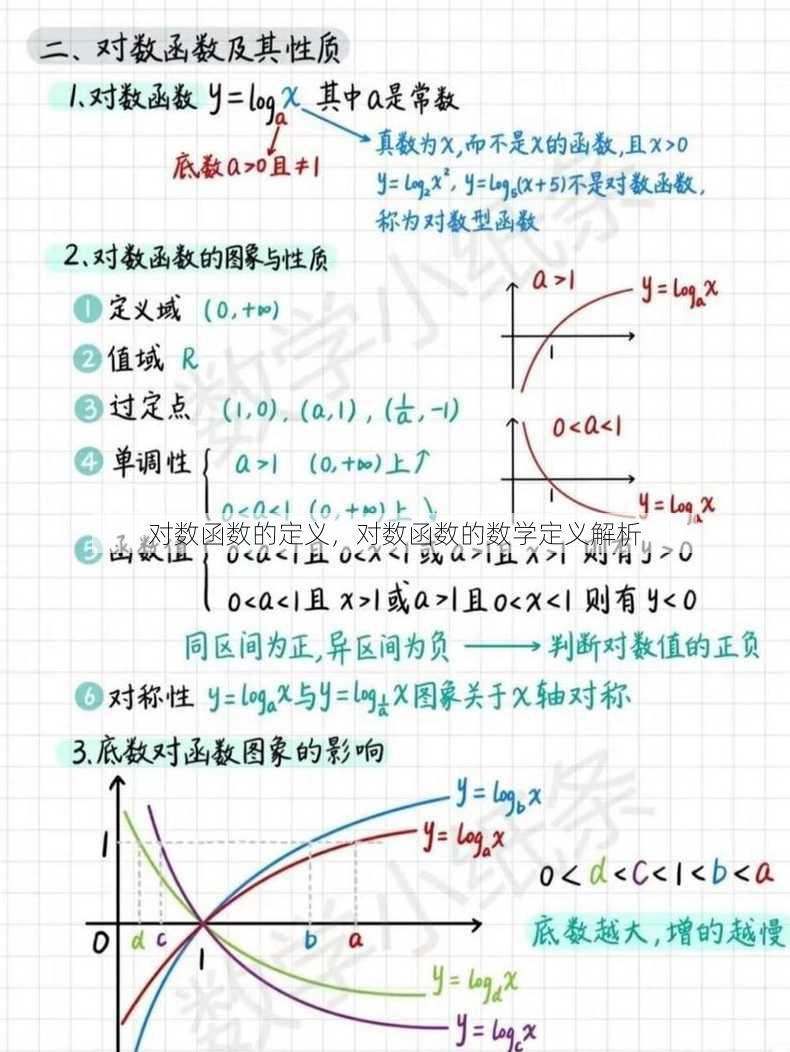 二、对数函数及其性质
1、对数函数 y=logₐx 其中a是常数
底数a>0且≠1
真数为x,而不是x的函数,且x>0
y=log₂x², y=log₅(x+5)不是对数函数,
称为对数型函数
2、对数函数的图象与性质
① 定义域 (0,+∞)
② 值域 R
③ 过定点 (1,0), (a,1), (1/a,-1)
④ 单调性 { a>1 (0,+∞)上↑
0<a<1 (0,+∞)上↓
a>1
y=logₐx
1
0<a<1
1
y=logₐx
对数函数的定义，对数函数的数学定义解析
⑤ 函数值 { 0<a<1且0<x<1或a>1且x>1 则有y>0
0<a<1且x>1或a>1且0<x<1 则有y<0
同区间为正,异区间为负 → 判断对数值的正负
⑥ 对称性 y=logₐx与y=log_{1/a}x图象关于x轴对称
3、底数对函数图象的影响
y=log_b x
1
y=logₐx
0<d<c<1<b<a
底数越大,增的越慢
0 d c 1 b a
y=log_d x
y=log_c x
数学小纸条
数学小纸条